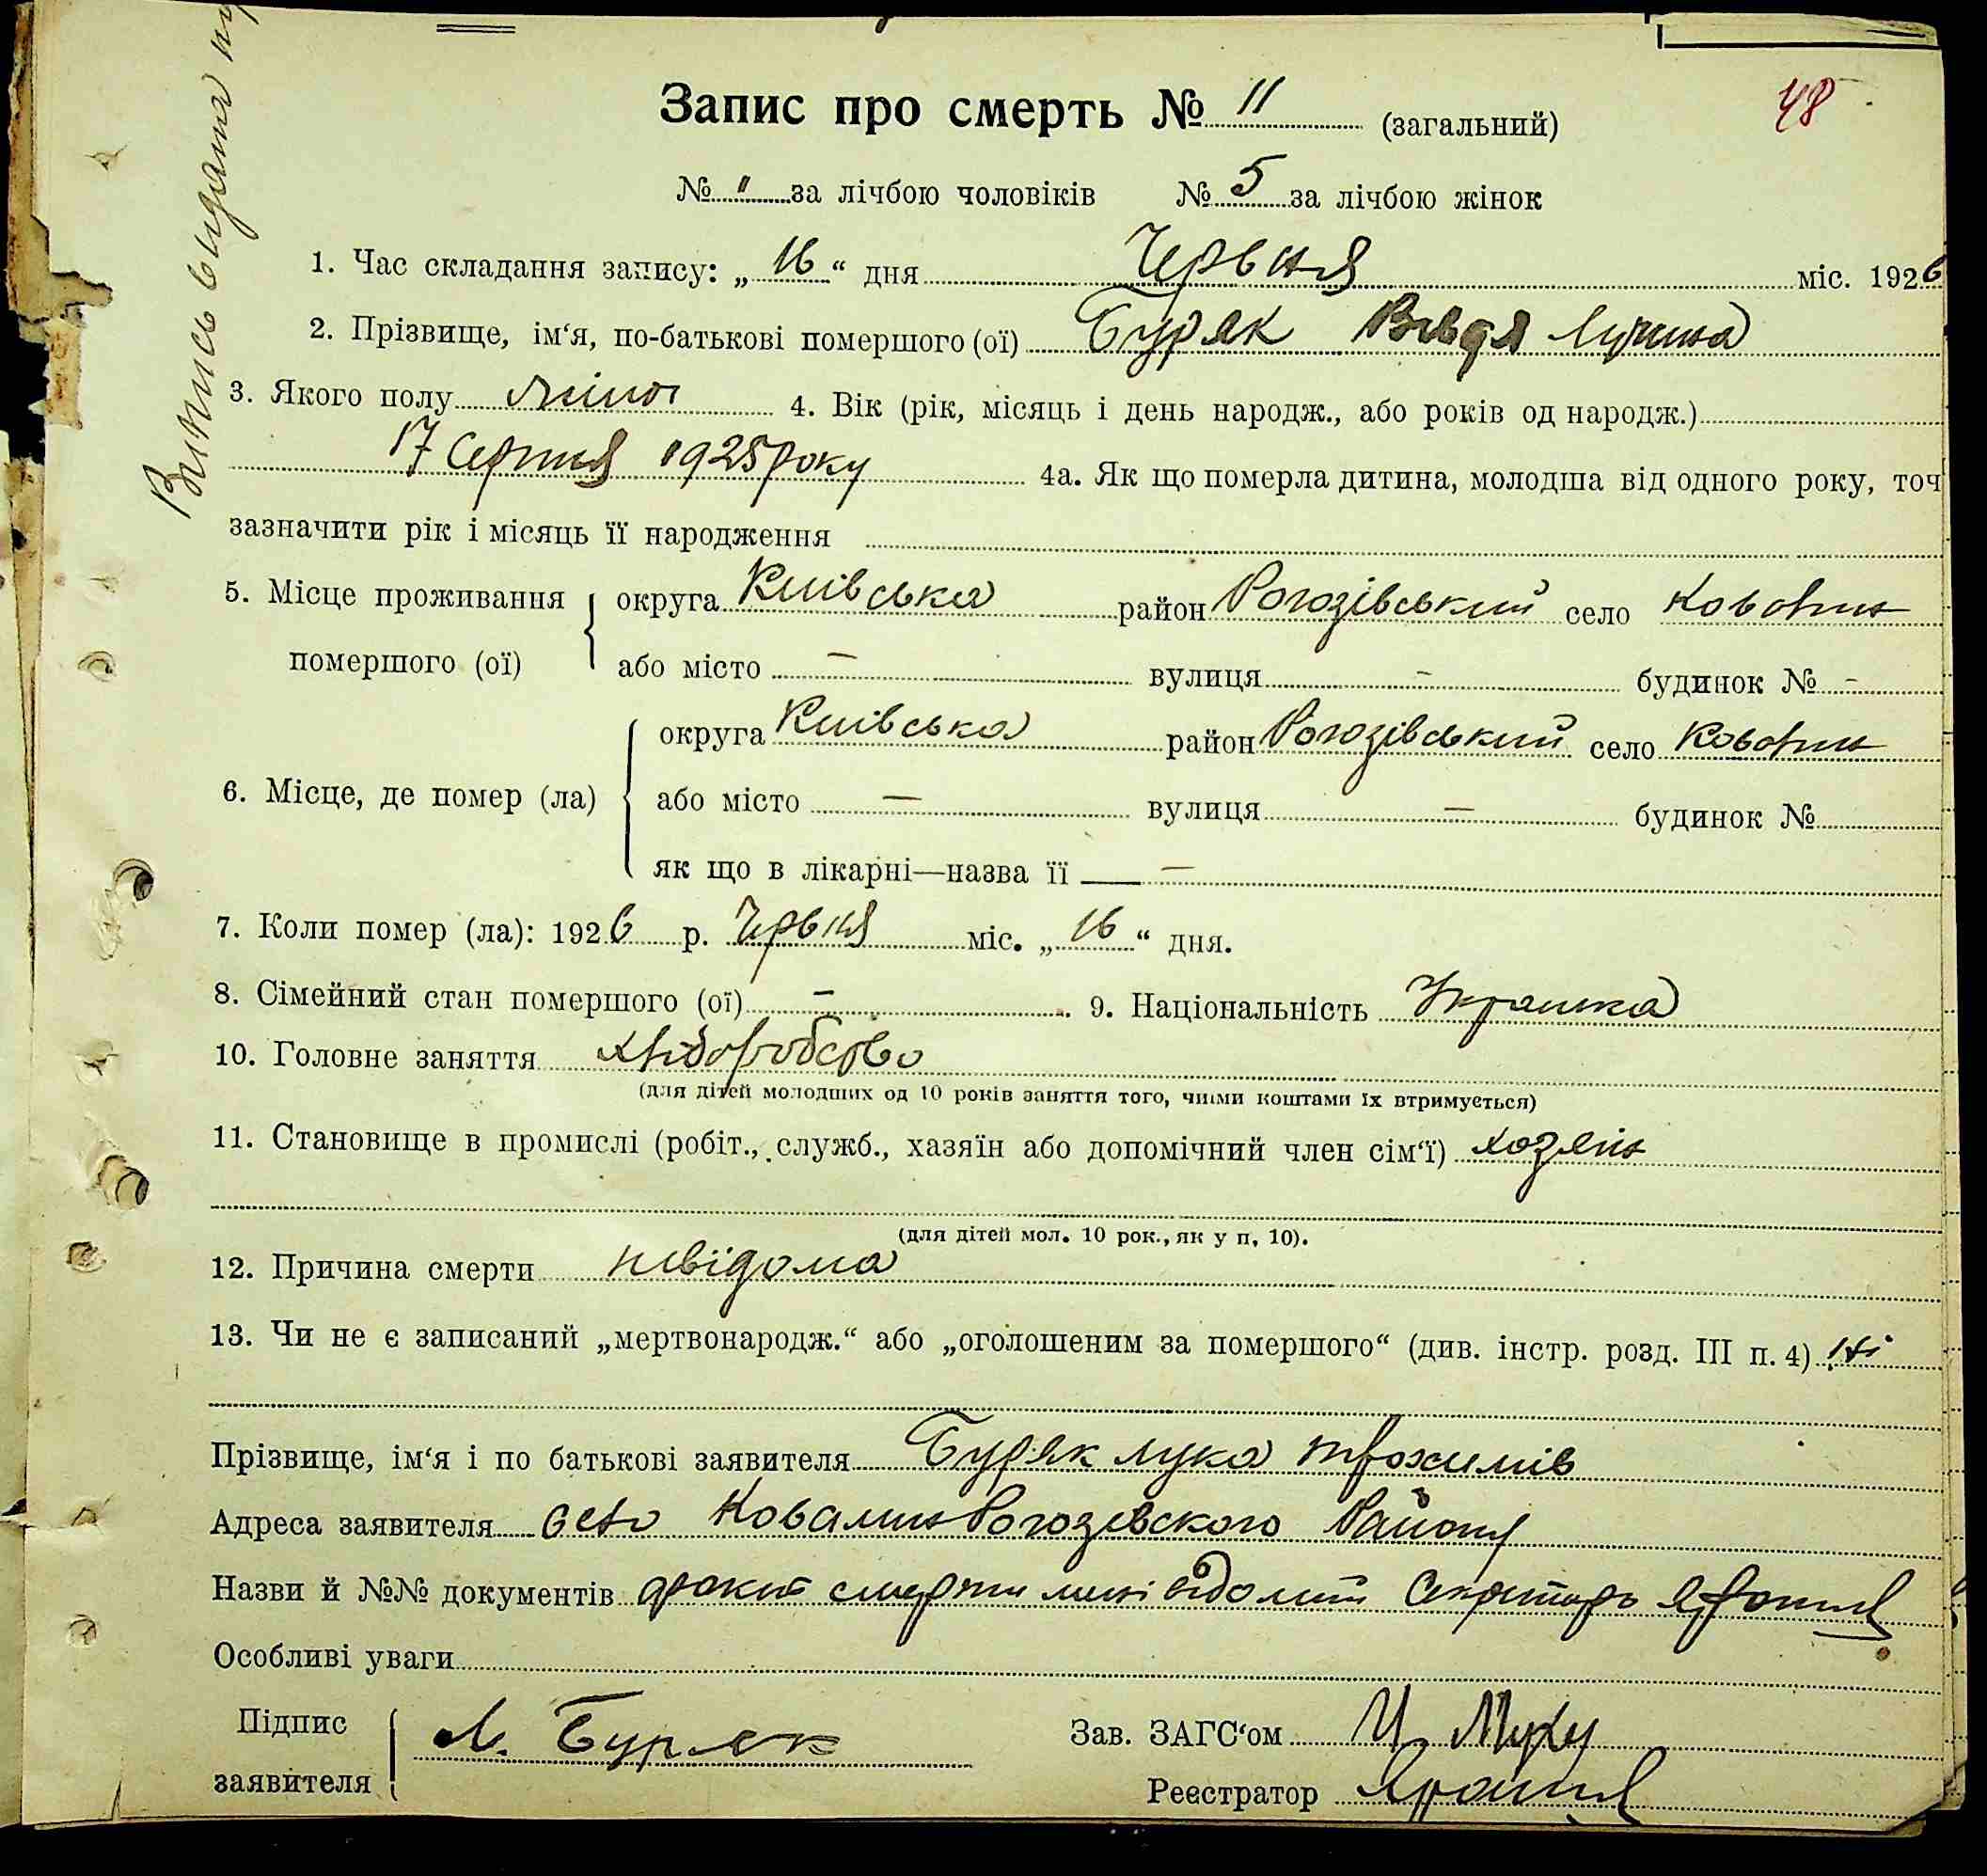 Випись видана
48
Запис про смерть № 11 (загальний)
№ " за лічбою чоловіків № 5 за лічбою жінок
1. Час складання запису: „ 16 “ дня Червня міс. 1926
2. Прізвище, ім‘я, по-батькові помершого (ої) Буряк Вівдя Лучина
3. Якого полу жіноч 4. Вік (рік, місяць і день народж., або років од народж.)
17 Серпня 1925 року 4а. Як що померла дитина, молодша від одного року, точ
зазначити рік і місяць її народження
5. Місце проживання округа Київська район Рогозівський село Ковалин
помершого (ої) або місто — вулиця - будинок № -
округа Київська район Рогозівський село Ковалин
6. Місце, де помер (ла) або місто — вулиця — будинок №
як що в лікарні—назва її —
7. Коли помер (ла): 1926 р. Червня міс. „ 16 “ дня.
8. Сімейний стан помершого (ої) — 9. Національність Украинка
10. Головне заняття хліборобство
(для дітей молодших од 10 років заняття того, чиїми коштами їх втримується)
11. Становище в промислі (робіт., служб., хазяїн або допомічний член сім‘ї) хозяїн
(для дітей мол. 10 рок., як у п, 10).
12. Причина смерти невідома
13. Чи не є записаний „мертвонародж.“ або „оголошеним за помершого“ (див. інстр. розд. III п. 4) Ні
Прізвище, ім‘я і по батькові заявителя Буряк Лука Трохимів
Адреса заявителя село Ковалин Рогозевского Району
Назви й №№ документів факт смерти мені відомий Секретарь
Особливі уваги
Підпис Л. Буряк Зав. ЗАГС‘ом
заявителя Реєстратор